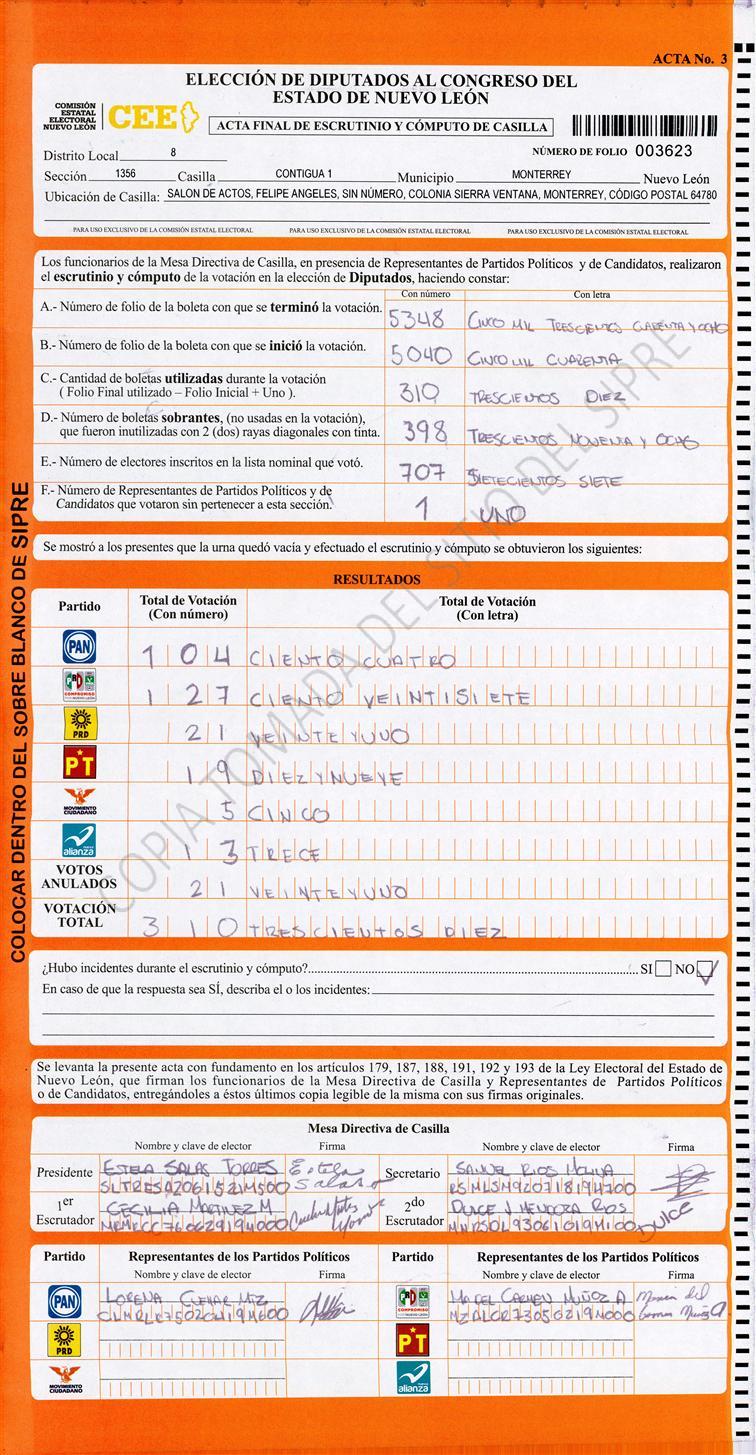 ACTA No. 3
ELECCIÓN DE DIPUTADOS AL CONGRESO DEL
ESTADO DE NUEVO LEÓN
COMISIÓN
ESTATAL
ELECTORAL
NUEVO LEÓN
CEE
ACTA FINAL DE ESCRUTINIO Y CÓMPUTO DE CASILLA
Distrito Local 8
NÚMERO DE FOLIO 003623
Sección 1356 Casilla CONTIGUA 1 Municipio MONTERREY Nuevo León
Ubicación de Casilla: SALON DE ACTOS, FELIPE ANGELES, SIN NÚMERO, COLONIA SIERRA VENTANA, MONTERREY, CÓDIGO POSTAL 64780
PARA USO EXCLUSIVO DE LA COMISIÓN ESTATAL ELECTORAL PARA USO EXCLUSIVO DE LA COMISIÓN ESTATAL ELECTORAL PARA USO EXCLUSIVO DE LA COMISIÓN ESTATAL ELECTORAL
Los funcionarios de la Mesa Directiva de Casilla, en presencia de Representantes de Partidos Políticos y de Candidatos, realizaron
el escrutinio y cómputo de la votación en la elección de Diputados, haciendo constar:
Con número Con letra
A.- Número de folio de la boleta con que se terminó la votación. 5348 CINCO MIL TRESCIENTOS CUARENTA Y OCHO
B.- Número de folio de la boleta con que se inició la votación. 5040 CINCO MIL CUARENTA
C.- Cantidad de boletas utilizadas durante la votación
( Folio Final utilizado – Folio Inicial + Uno ). 310 TRESCIENTOS DIEZ
D.- Número de boletas sobrantes, (no usadas en la votación),
que fueron inutilizadas con 2 (dos) rayas diagonales con tinta. 398 TRESCIENTOS NOVENTA Y OCHO
E.- Número de electores inscritos en la lista nominal que votó. 707 SIETECIENTOS SIETE
F.- Número de Representantes de Partidos Políticos y de
Candidatos que votaron sin pertenecer a esta sección. 1 UNO
Se mostró a los presentes que la urna quedó vacía y efectuado el escrutinio y cómputo se obtuvieron los siguientes:
RESULTADOS
Partido Total de Votación (Con número) Total de Votación (Con letra)
PAN 104 CIENTO CUATRO
PRI COMPROMISO 127 CIENTO VEINTISIETE
PRD 21 VEINTE Y UNO
PT 19 DIEZ Y NUEVE
MOVIMIENTO CIUDADANO 5 CINCO
alianza 13 TRECE
VOTOS ANULADOS 21 VEINTE Y UNO
VOTACIÓN TOTAL 310 TRESCIENTOS DIEZ
¿Hubo incidentes durante el escrutinio y cómputo? SI NO
En caso de que la respuesta sea SÍ, describa el o los incidentes:
Se levanta la presente acta con fundamento en los artículos 179, 187, 188, 191, 192 y 193 de la Ley Electoral del Estado de
Nuevo León, que firman los funcionarios de la Mesa Directiva de Casilla y Representantes de Partidos Políticos
o de Candidatos, entregándoles a éstos últimos copia legible de la misma con sus firmas originales.
Mesa Directiva de Casilla
Nombre y clave de elector Firma Nombre y clave de elector Firma
Presidente ESTELA SALAS TORRES Estela Salas Secretario SAMUEL RIOS MOLINA
1er Escrutador CECILIA MARTINEZ M. 2do Escrutador DULCE J MENDOZA RIOS DULCE
Partido Representantes de los Partidos Políticos Partido Representantes de los Partidos Políticos
Nombre y clave de elector Firma Nombre y clave de elector Firma
PAN LORENA PRI COMPROMISO MA DEL CARMEN MUÑOZ A
PRD PT
MOVIMIENTO CIUDADANO alianza
COLOCAR DENTRO DEL SOBRE BLANCO DE SIPRE
COPIA TOMADA DEL SITIO DEL SIPRE